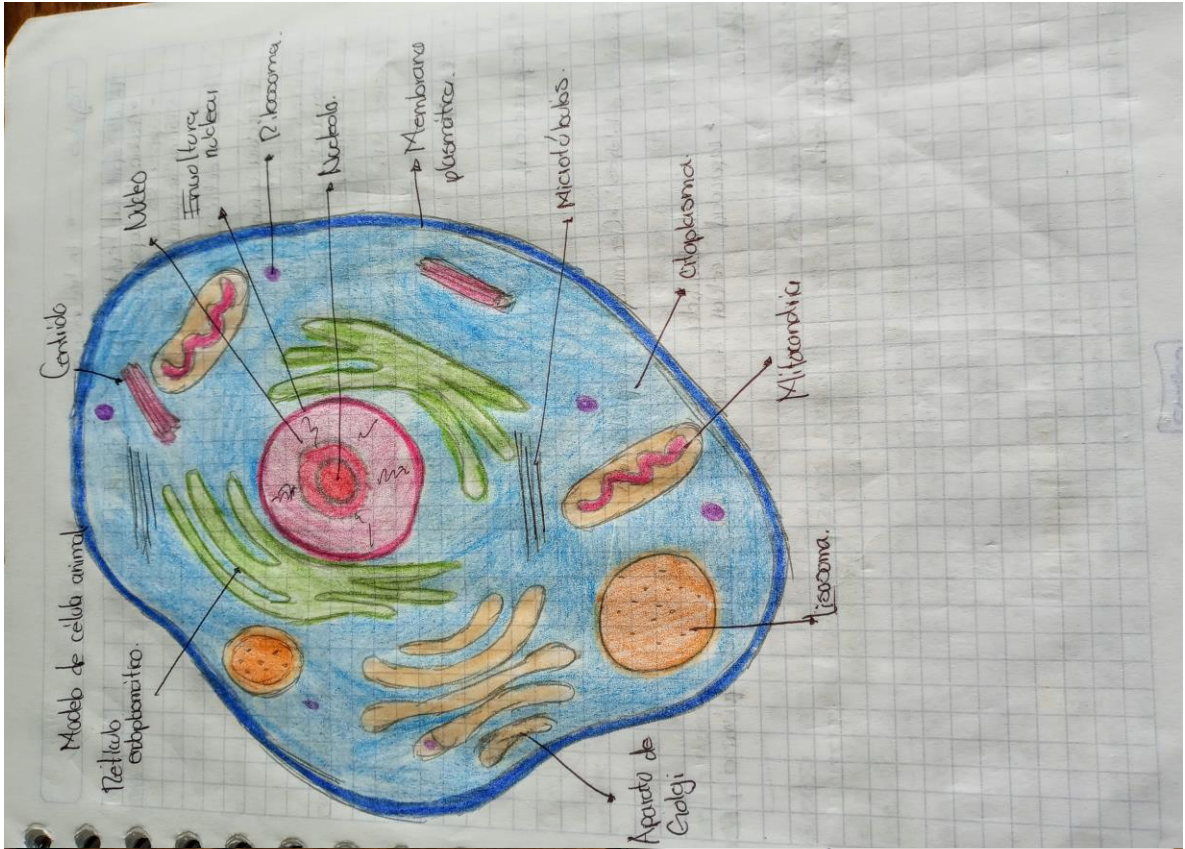 Modelo de célula animal
Retículo
endoplasmático.
Centriolo
Núcleo
Envoltura
nuclear
Ribosoma.
Nucleolo.
Membrana
plasmática.
Microtúbulos.
Citoplasma.
Mitocondria
Lisosoma.
Aparato de
Golgi